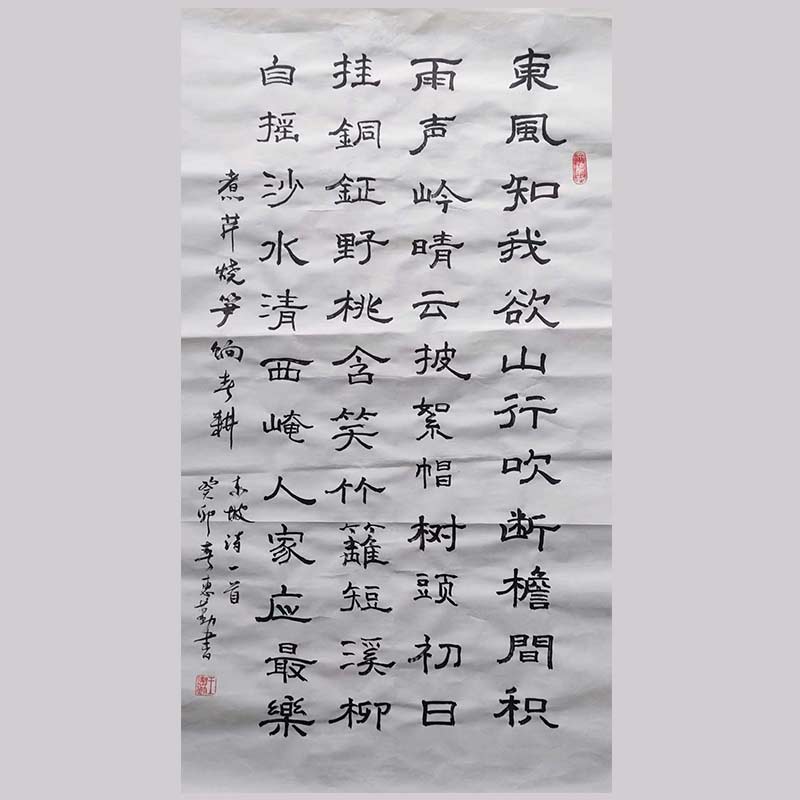 東風知我欲山行吹断檐間积
雨声岭晴云披絮帽树頭初日
挂銅鉦野桃含笑竹籬短溪柳
自摇沙水清西崦人家应最樂
煮芹烧笋餉春耕
东坡诗一首
癸卯春惠勤書